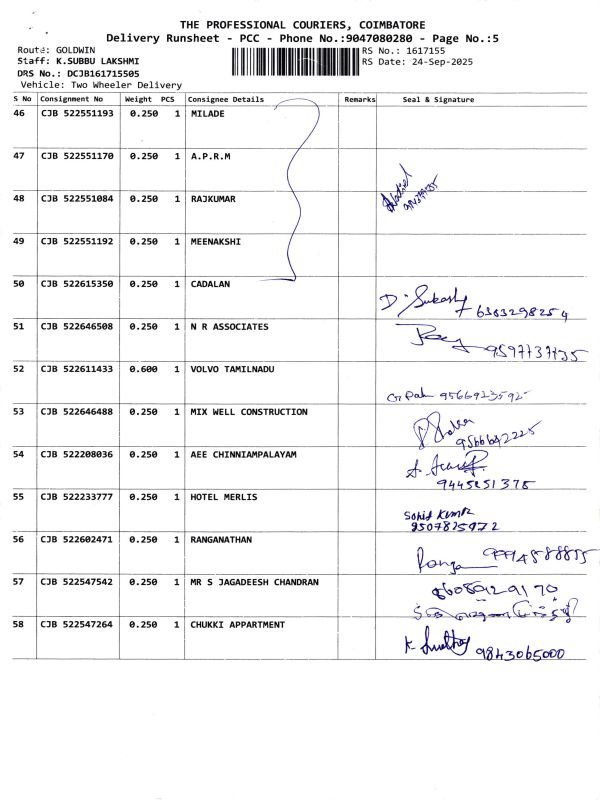 THE PROFESSIONAL COURIERS, COIMBATORE
Delivery Runsheet - PCC - Phone No.:9047080280 - Page No.:5
Route: GOLDWIN
RS No.: 1617155
Staff: K.SUBBU LAKSHMI
RS Date: 24-Sep-2025
DRS No.: DCJB161715505
Vehicle: Two Wheeler Delivery
S No Consignment No Weight PCS Consignee Details Remarks Seal & Signature
46 CJB 522551193 0.250 1 MILADE
47 CJB 522551170 0.250 1 A.P.R.M
48 CJB 522551084 0.250 1 RAJKUMAR
49 CJB 522551192 0.250 1 MEENAKSHI
50 CJB 522615350 0.250 1 CADALAN
D. Sukash 6383298254
51 CJB 522646508 0.250 1 N R ASSOCIATES
9597137135
52 CJB 522611433 0.600 1 VOLVO TAMILNADU
9566923592
53 CJB 522646488 0.250 1 MIX WELL CONSTRUCTION
9566692225
54 CJB 522208036 0.250 1 AEE CHINNIAMPALAYAM
9445251375
55 CJB 522233777 0.250 1 HOTEL MERLIS
9507825972
56 CJB 522602471 0.250 1 RANGANATHAN
Ranga 9994588855
57 CJB 522547542 0.250 1 MR S JAGADEESH CHANDRAN
8608929170
58 CJB 522547264 0.250 1 CHUKKI APPARTMENT
9843065000